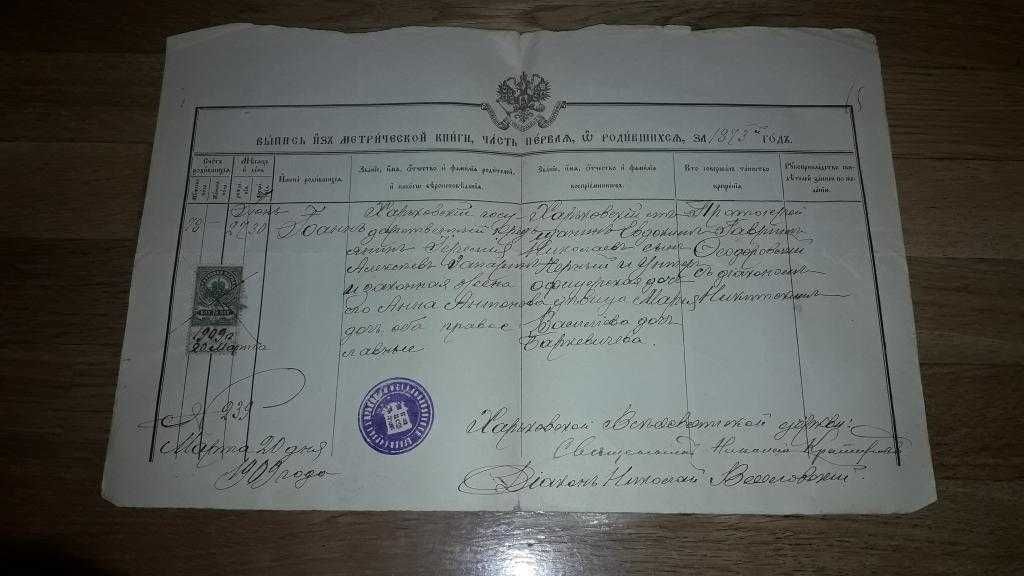 ВЫПИСЬ ИЗЪ МЕТРИЧЕСКОЙ КНИГИ, ЧАСТЬ ПЕРВАЯ, Ѿ РОДИВШИХСЯ, ЗА 1873 ГОДЪ.
Счетъ родившихся.
Мѣсяцъ и день.
Имена родившихся.
Званіе, имя, отчество и фамилія родителей, и какого вѣроисповѣданія.
Званіе, имя, отчество и фамилія воспріемниковъ.
Кто совершалъ таинство крещенія.
Рукоприкладство свидѣтелей записи по желанію.
Іоаннъ
Харьковскій госу
дарственный
Алексѣевъ
и законная жена
его Анна Антонова
дочь оба право
славные
Харьковскій
Николаевъ сынъ
Черный и Унтеръ
офицерская дочь
дѣвица Марія
Васильева дочь
Баркевичева.
Протоіерей
Гавріилъ
Ѳеодоровскій
съ діакономъ
Никитскимъ
1909 г.
20 Марта
№ 232
Марта 20 дня
1909 года
Харьковской Всѣхсвятской церкви:
Священникъ Николай
Діаконъ Николай Веселовскій.